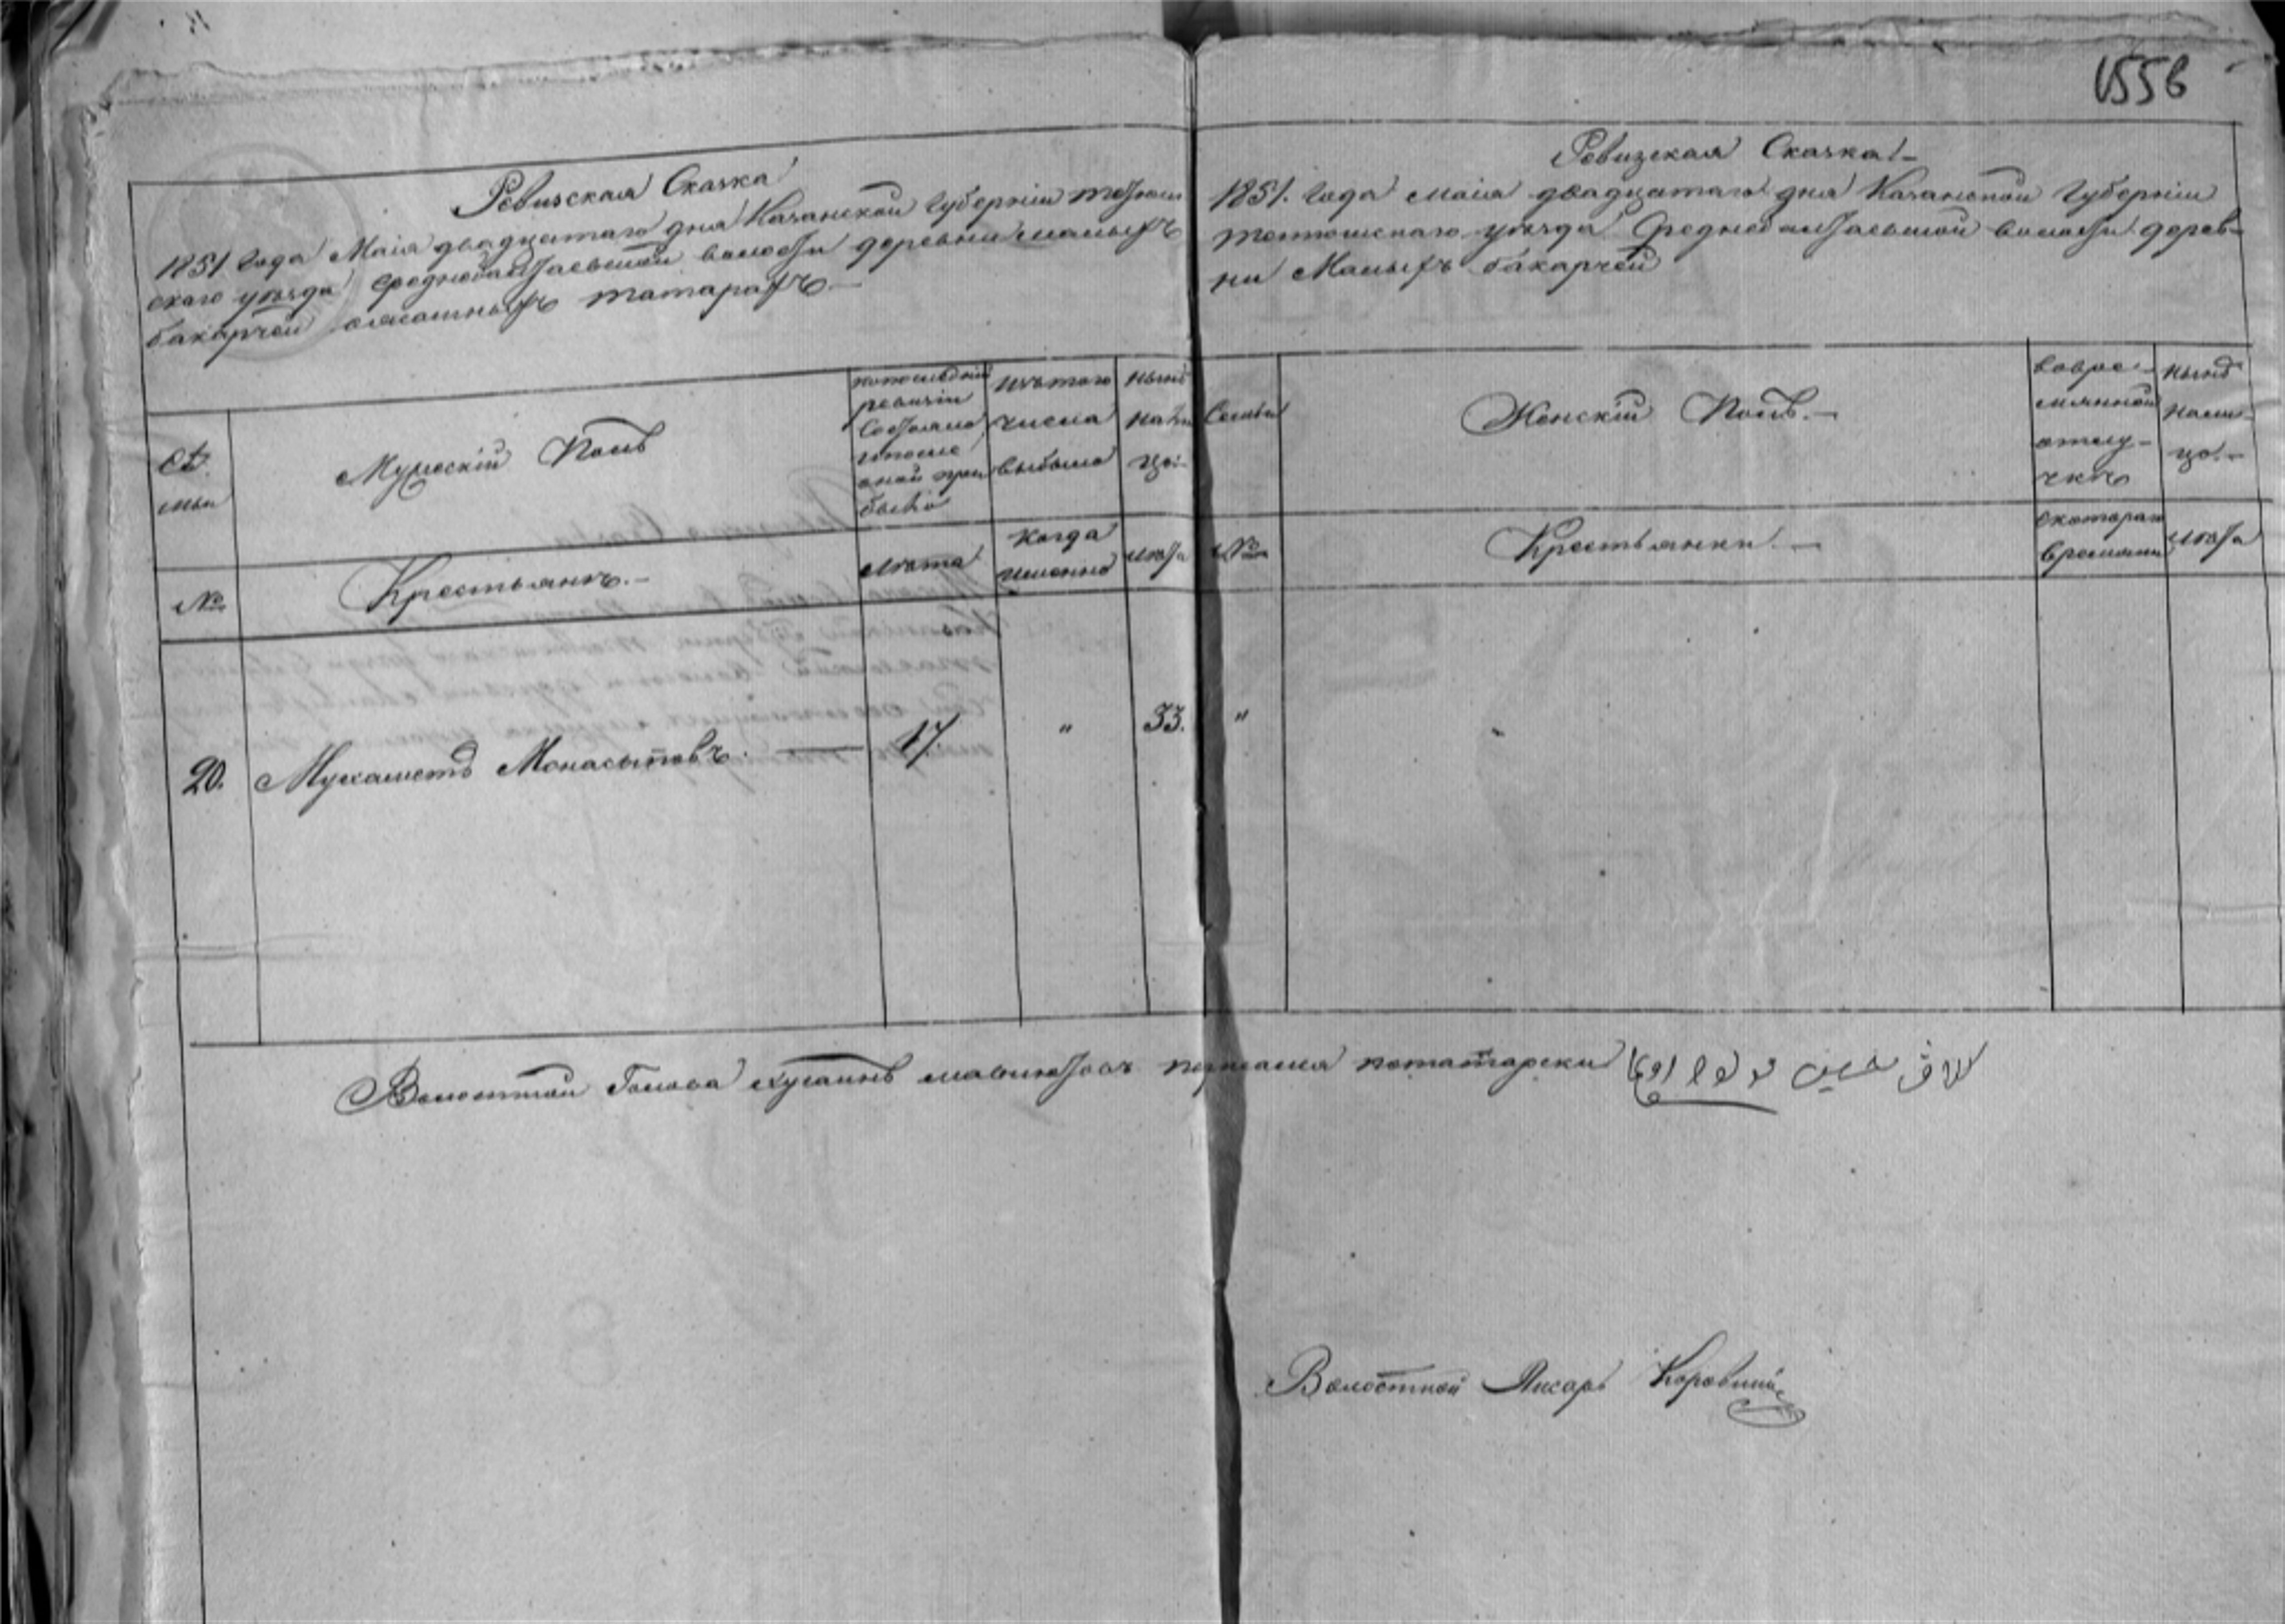 1556
Ревизская Сказка
1851 года Маія двадцатаго дня Казанской губерніи тетюш
скаго уезда Среднебалтаевской волости деревни малыхъ
бакарчей ясашныхъ татарахъ.—
Ревизская Сказка.—
1851. года маія двадцатаго дня Казанской губерніи
тетюшскаго уезда Среднебалтаевской волости дерев-
ни Малыхъ бакарчей
Се
мьи
Мужескій Полъ
попоследній
ревизіи
Состояло
ипосле
оной при
было
изътого
числа
выбыло
ныне
налицо
№
Крестьянъ.—
лета
Когда
именно
лета
Семьи
Женскій Полъ.—
вовре-
мянной
отлу-
чке
ныне
нали-
цо.—
№
Крестьянки.—
скоторого
времяни
лета
20. Мухаметъ Монасыповъ. — 17. " 33. "
Волостной Голова хусаинъ писался потатарски
Волостной Писарь Коровинъ